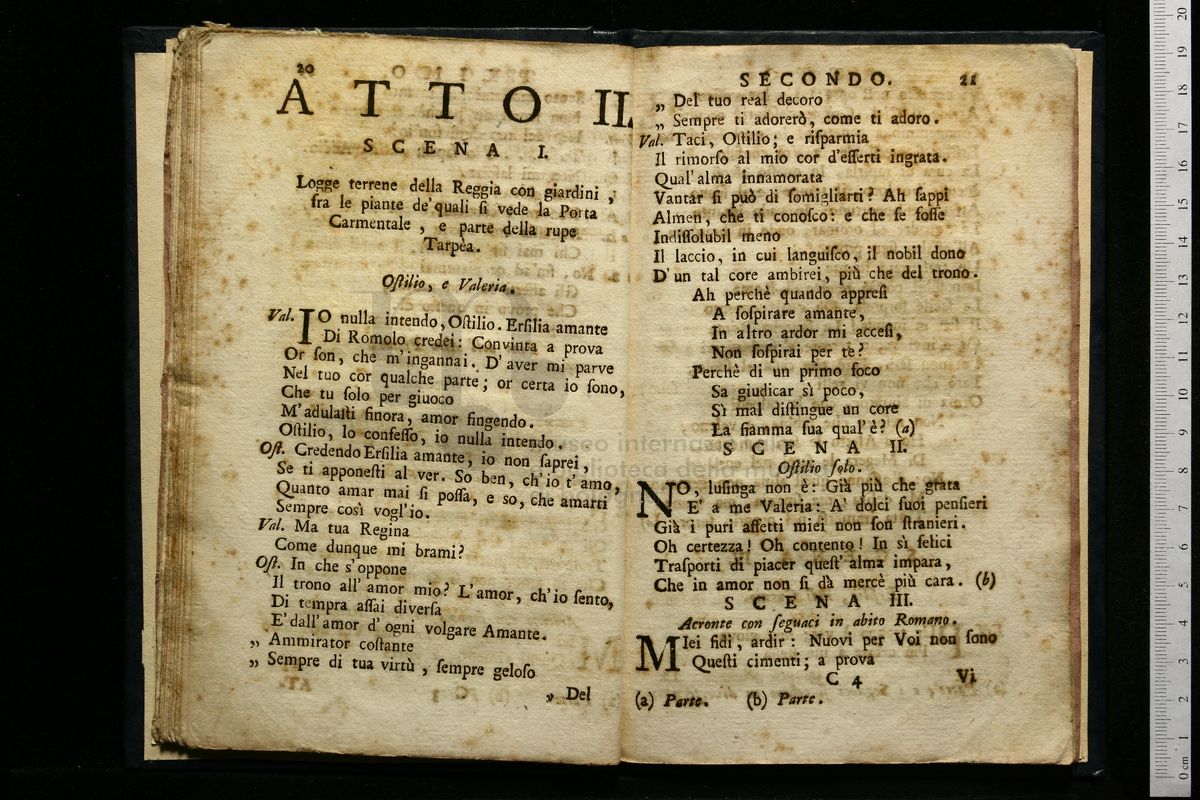 20
ATTO II.
SCENA I.
Logge terrene della Reggia con giardini,
fra le piante de' quali ſi vede la Porta
Carmentale, e parte della rupe
Tarpèa.
Oſtilio, e Valeria.
Val. IO nulla intendo, Oſtilio. Erſilia amante
Di Romolo credei: Convinta a prova
Or ſon, che m'ingannai. D'aver mi parve
Nel tuo cor qualche parte; or certa io ſono,
Che tu ſolo per giuoco
M'adulaſti finora, amor fingendo.
Oſtilio, lo confeſſo, io nulla intendo.
Oſt. Credendo Erſilia amante, io non ſaprei,
Se ti apponeſti al ver. So ben, ch'io t'amo,
Quanto amar mai ſi poſſa, e so, che amarti
Sempre così vogl'io.
Val. Ma tua Regina
Come dunque mi brami?
Oſt. In che s'oppone
Il trono all'amor mio? L'amor, ch'io ſento,
Di tempra aſſai diverſa
E' dall'amor d'ogni volgare Amante.
„ Ammirator coſtante
„ Sempre di tua virtù, ſempre geloſo
„ Del
SECONDO. 21
„ Del tuo real decoro
„ Sempre ti adorerò, come ti adoro.
Val. Taci, Oſtilio; e riſparmia
Il rimorſo al mio cor d'eſſerti ingrata.
Qual'alma innamorata
Vantar ſi può di ſomigliarti? Ah ſappi
Almen, che ti conoſco: e che ſe foſſe
Indiſſolubil meno
Il laccio, in cui languiſco, il nobil dono
D'un tal core ambirei, più che del trono.
Ah perchè quando appreſi
A ſoſpirare amante,
In altro ardor mi acceſi,
Non ſoſpirai per te?
Perchè di un primo foco
Sa giudicar sì poco,
Sì mal diſtingue un core
La fiamma ſua qual'è? (a)
SCENA II.
Oſtilio ſolo.
NO, luſinga non è: Già più che grata
E' a me Valeria: A' dolci ſuoi penſieri
Già i puri affetti miei non ſon ſtranieri.
Oh certezza! Oh contento! In sì felici
Traſporti di piacer queſt'alma impara,
Che in amor non ſi dà mercè più cara. (b)
SCENA III.
Acronte con ſeguaci in abito Romano.
MIei fidi, ardir: Nuovi per Voi non ſono
Queſti cimenti; a prova
C 4 Vi
(a) Parte. (b) Parte.